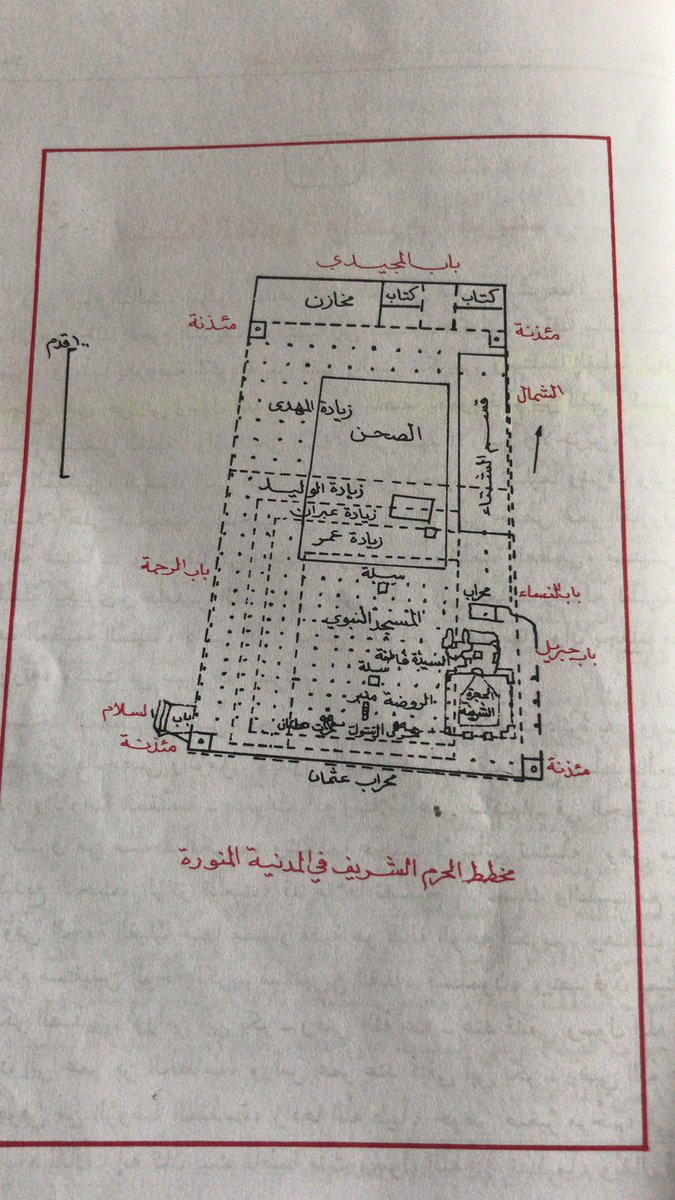 باب المجيدي
مخازن
كتاب
كتاب
مئذنة
مئذنة
١٠٠ قدم
الشمال
زيادة المهدى
الصحن
قسم الشتاء
زيادة الوليد
زيادة عمر
باب الرحمة
سبلة
محراب
باب النساء
المسجد النبوي
باب جبريل
السيدة فاطمة
سلة
الحجرة
الشريفة
الروضة
منبر
باب
السلام
مئذنة
مئذنة
محراب عثمان
مخطط الحرم الشريف في المدنية المنورة